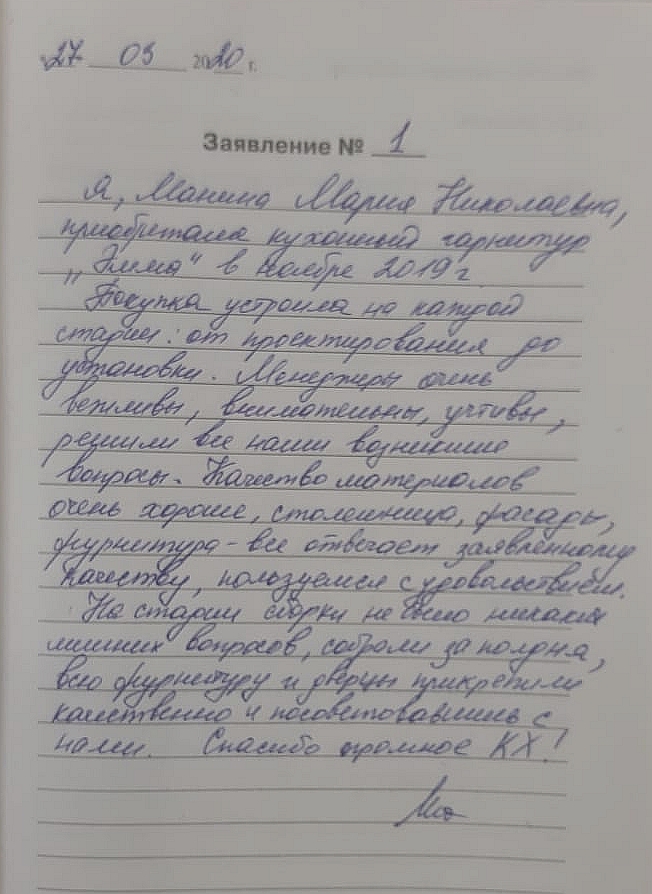 27 03 2020 г.
Заявление № 1
Я, Манина Мария Николаевна,
приобретала кухонный гарнитур
„Эмма“ в ноябре 2019 г.
Покупка устроила на каждой
стадии: от проектирования до
установки. Менеджеры очень
вежливы, внимательны, учтивы,
решили все наши возникшие
вопросы. Качество материалов
очень хорошее, столешница, фасады,
фурнитура - все отвечает заявленному
качеству, пользуемся с удовольствием.
На стадии сборки не было никаких
лишних вопросов, собрали за полдня,
всю фурнитуру и дверцы прикрепили
качественно и посоветовавшись с
нами. Спасибо огромное КХ!